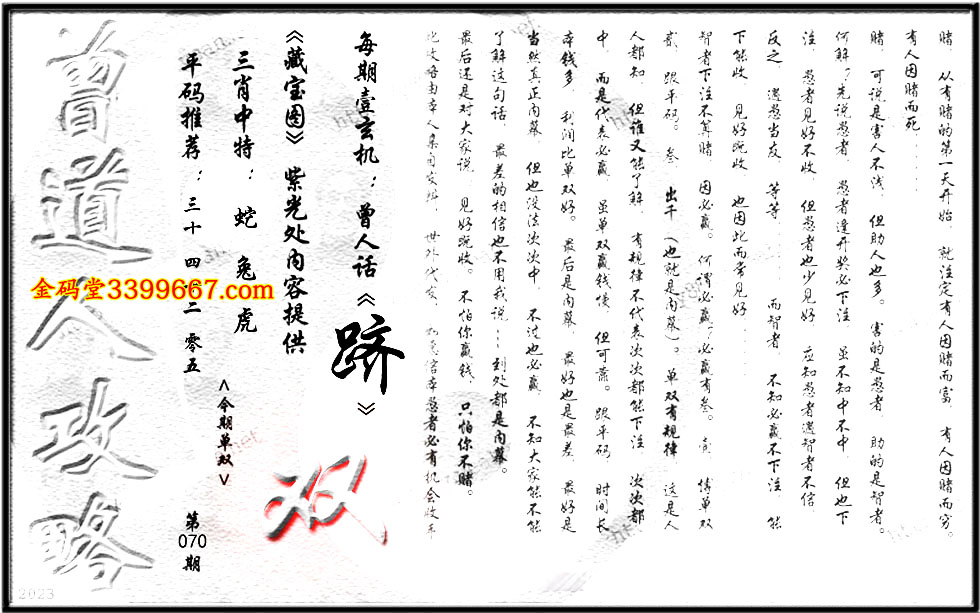 赌。从有赌的第一天开始。就注定有人因赌而富。有人因赌而穷。
有人因赌而死……
赌。可说是害人不浅。但助人也多。害的是愚者。助的是智者。
何解?先说愚者。愚者逢开奖必下注。虽不知中不中。但也下
注。愚者见好不收。但愚者也少见好。应知愚者遇智者不信。
反之。遇愚当友。等等……而智者。不知必赢不下注。能
下能收。见好就收。也因此而常见好……
智者下注不算赌。因必赢。何谓必赢?必赢有叁。壹。情单双
贰。跟平码。叁。出千(也就是内幕)。单双有规律。这是人
人都知。但谁又能了解。有规律不代表次次都能下注。次次都
中。而是代表必赢。虽单双赢钱慢。但可靠。跟平码。时间长
本钱多。利润比单双好。最后是内幕。最好也是最差。最好是
当然真正内幕。但也没法次次中。不过也必赢。不知大家能不能
了解这句话。最差的相信也不用我说……到处都是内幕。
最后还是对大家说。见好就收。不怕你赢钱。只怕你不赌。
每期壹玄机:曾人话《跻》
《藏宝图》紫光处内容提供
三肖中特:蛇 兔 虎
平码推荐:三十 四二 零五
<今期单双>
双
第070期
曾道人攻略
金码堂3399667.com
2023